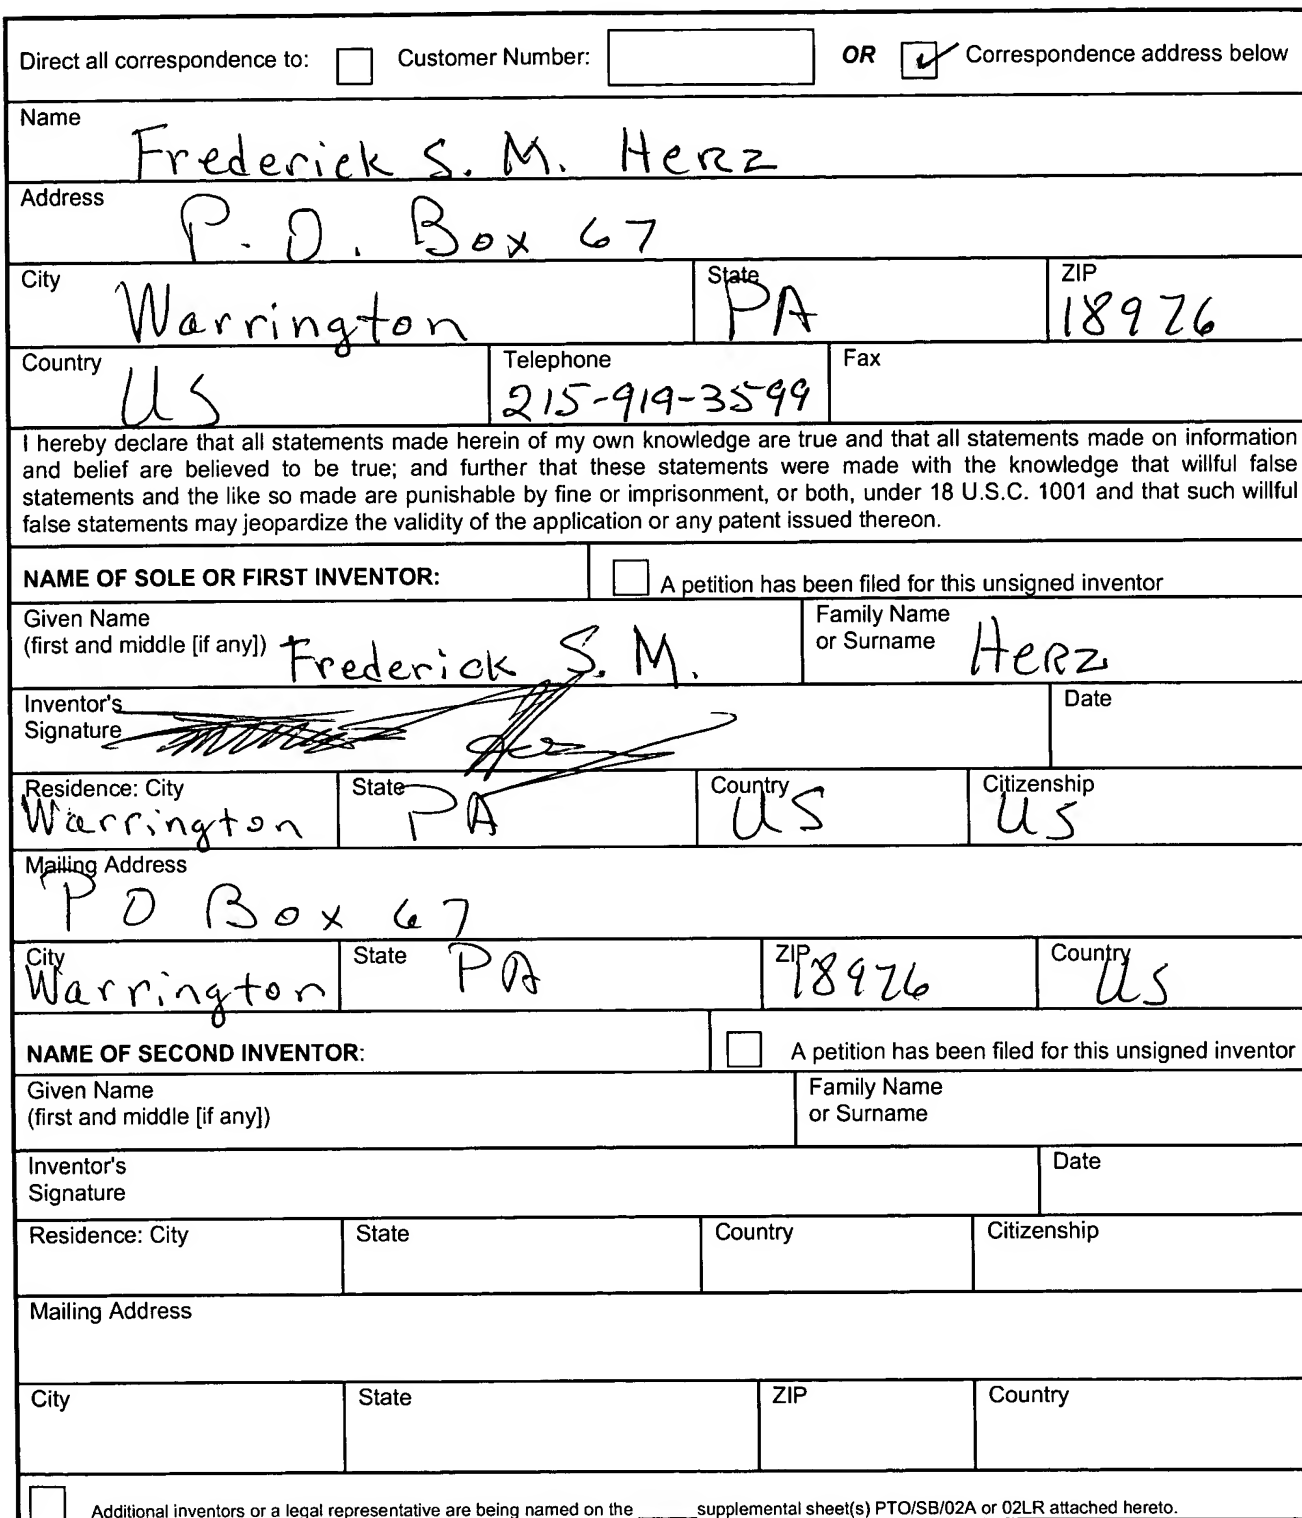 Direct all correspondence to: Customer Number: OR Correspondence address below
Name
Frederick S. M. Herz
Address
P.O. Box 67
City State ZIP
Warrington PA 18976
Country Telephone Fax
US 215-919-3599
I hereby declare that all statements made herein of my own knowledge are true and that all statements made on information
and belief are believed to be true; and further that these statements were made with the knowledge that willful false
statements and the like so made are punishable by fine or imprisonment, or both, under 18 U.S.C. 1001 and that such willful
false statements may jeopardize the validity of the application or any patent issued thereon.
NAME OF SOLE OR FIRST INVENTOR: A petition has been filed for this unsigned inventor
Given Name Family Name
(first and middle [if any]) Frederick S. M. or Surname Herz
Inventor's Date
Signature
Residence: City State Country Citizenship
Warrington PA US US
Mailing Address
PO Box 67
City State PA ZIP Country
Warrington 18976 US
NAME OF SECOND INVENTOR: A petition has been filed for this unsigned inventor
Given Name Family Name
(first and middle [if any]) or Surname
Inventor's Date
Signature
Residence: City State Country Citizenship
Mailing Address
City State ZIP Country
Additional inventors or a legal representative are being named on the ______supplemental sheet(s) PTO/SB/02A or 02LR attached hereto.